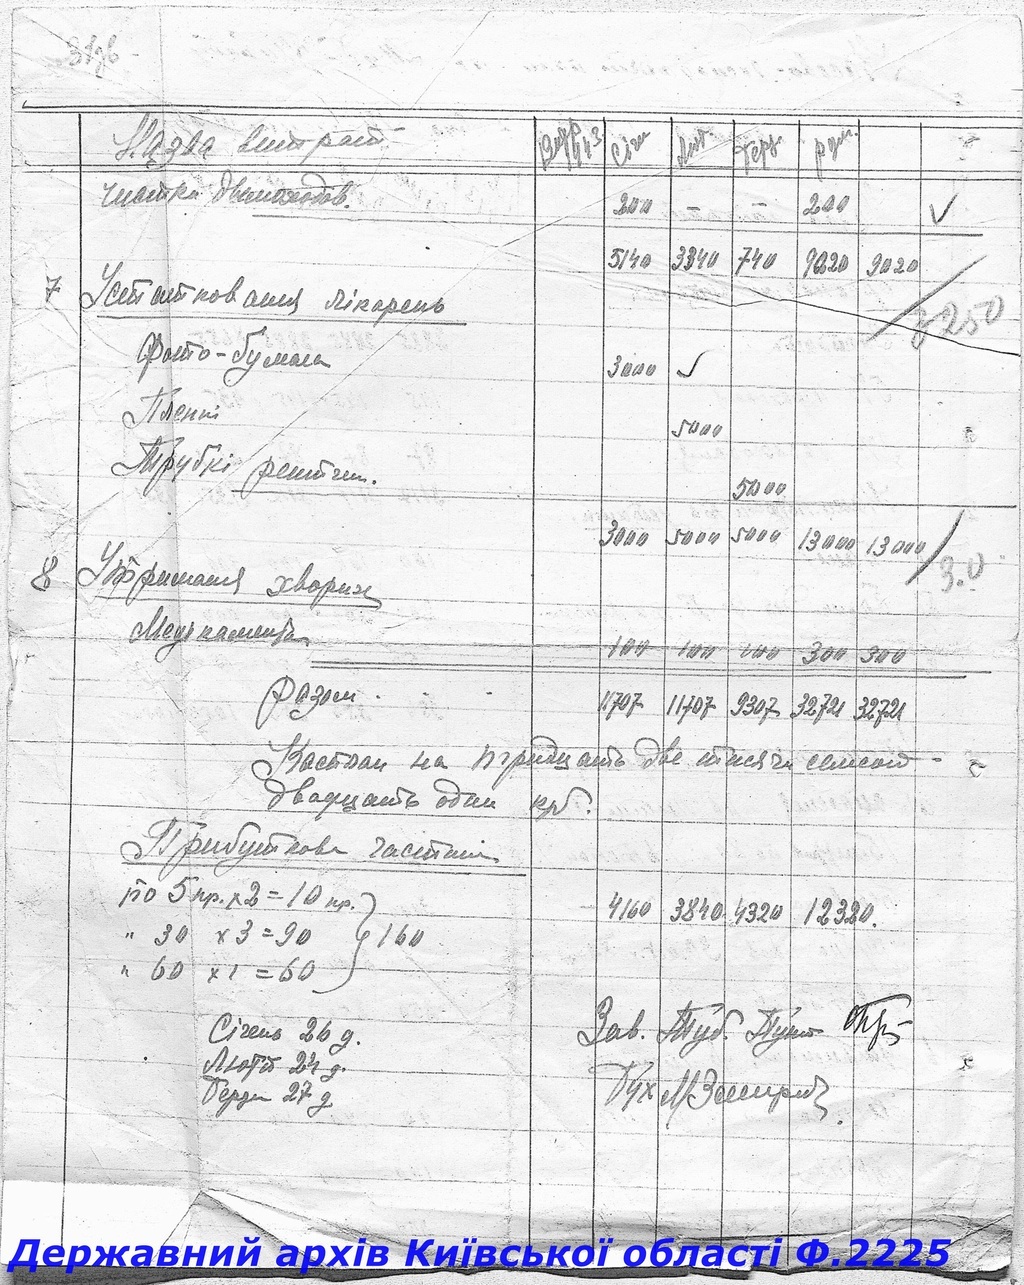 Назва витрат Січ Лют Берз разом.
чистка дымоходов. 200 - - 200
5140 3340 740 9020 9020
7 Устаткованя лікарень 250
Фото-бумага 3000
Пленкі 5000
Трубкі рентген. 5000
3000 5000 5000 13000 13000
8 Утриманя хворих 3.0
Медикаменти 100 100 100 300 300
Разом 11707 11707 9307 32721 32721
на тридцать две тисячи семсот
двадцать один крб.
Прибуткова частина
по 5 кр. x 2 = 10 кр. 4160 3840 4320 12320.
" 30 x 3 = 90 160
" 60 x 1 = 60
Січень 26 д.
Лютій 24 д.
Берзн 27 д
Зав. Туб. Пункт
Бух
Державний архів Київської області Ф.2225